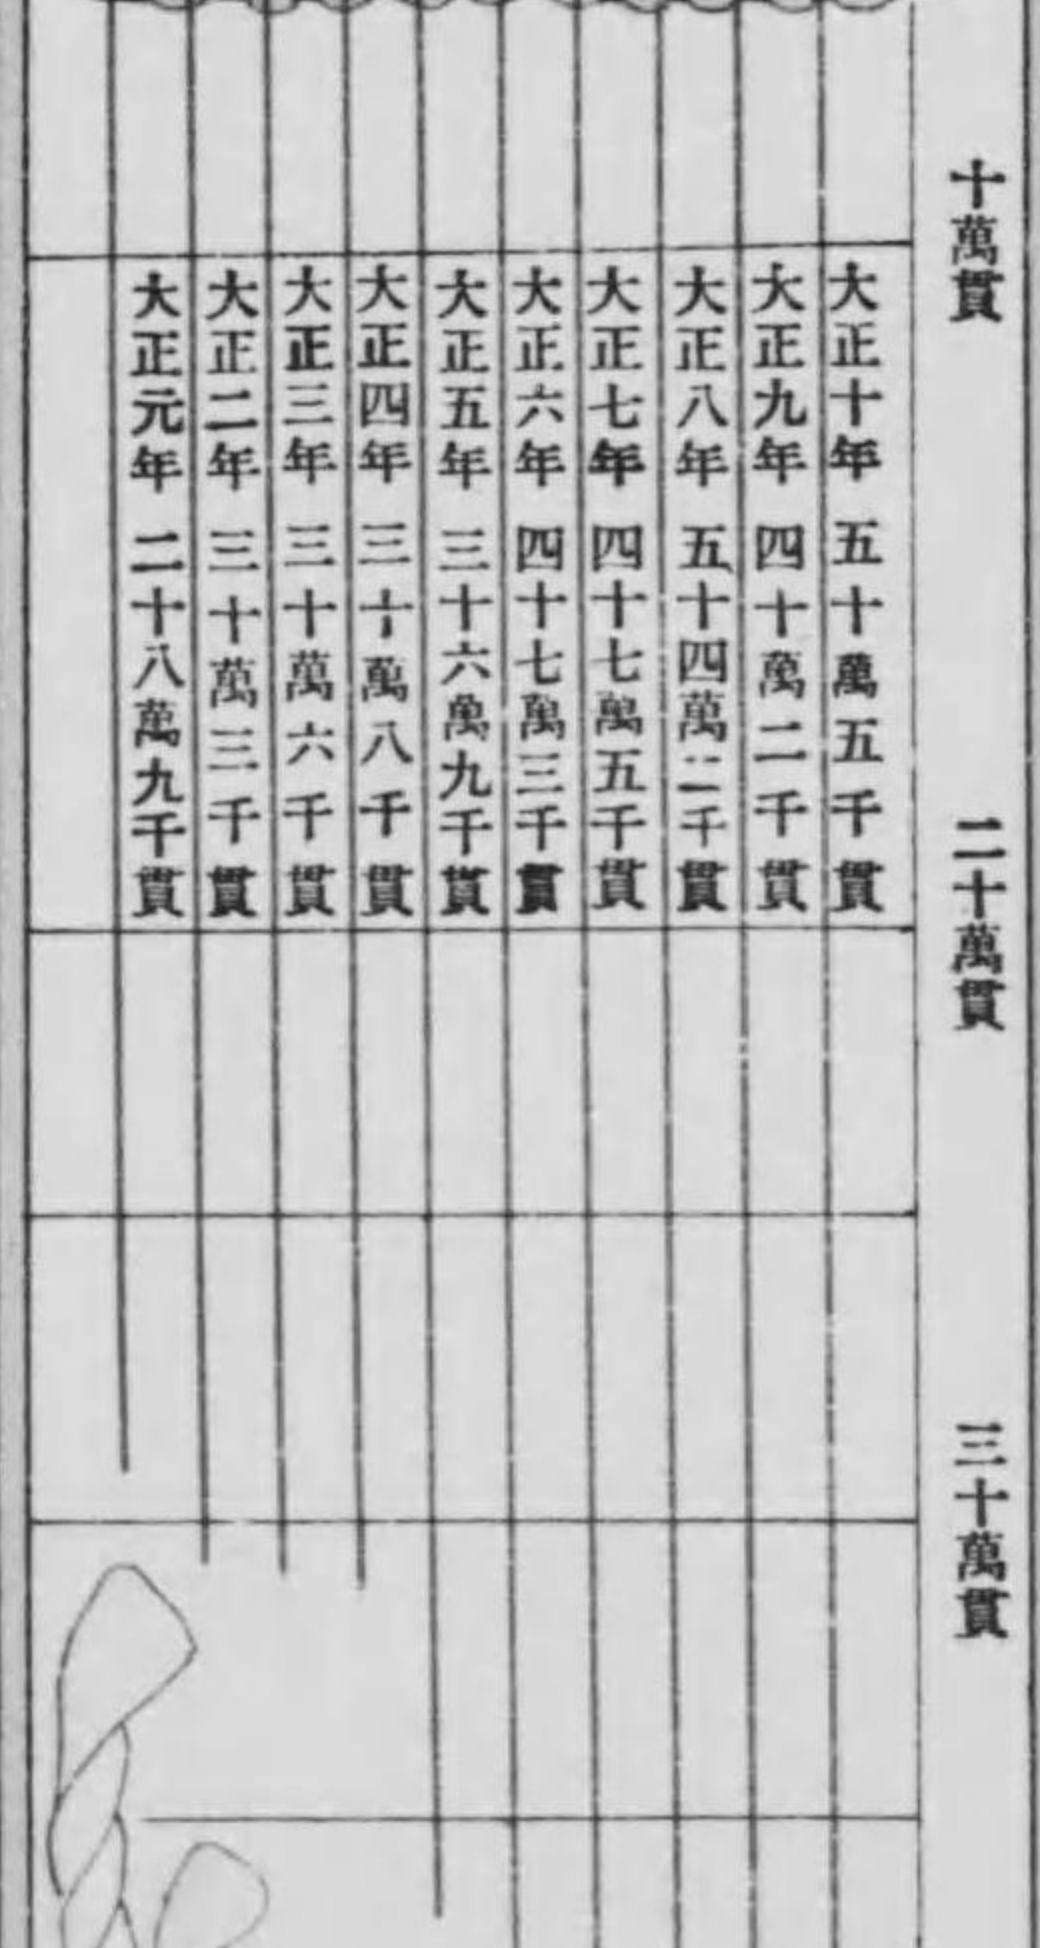 十萬貫
二十萬貫
三十萬貫
大正十年 五十萬五千貫
大正九年 四十萬二千貫
大正八年 五十四萬二千貫
大正七年 四十七萬五千貫
大正六年 四十七萬三千貫
大正五年 三十六萬九千貫
大正四年 三十萬八千貫
大正三年 三十萬六千貫
大正二年 三十萬三千貫
大正元年 二十八萬九千貫